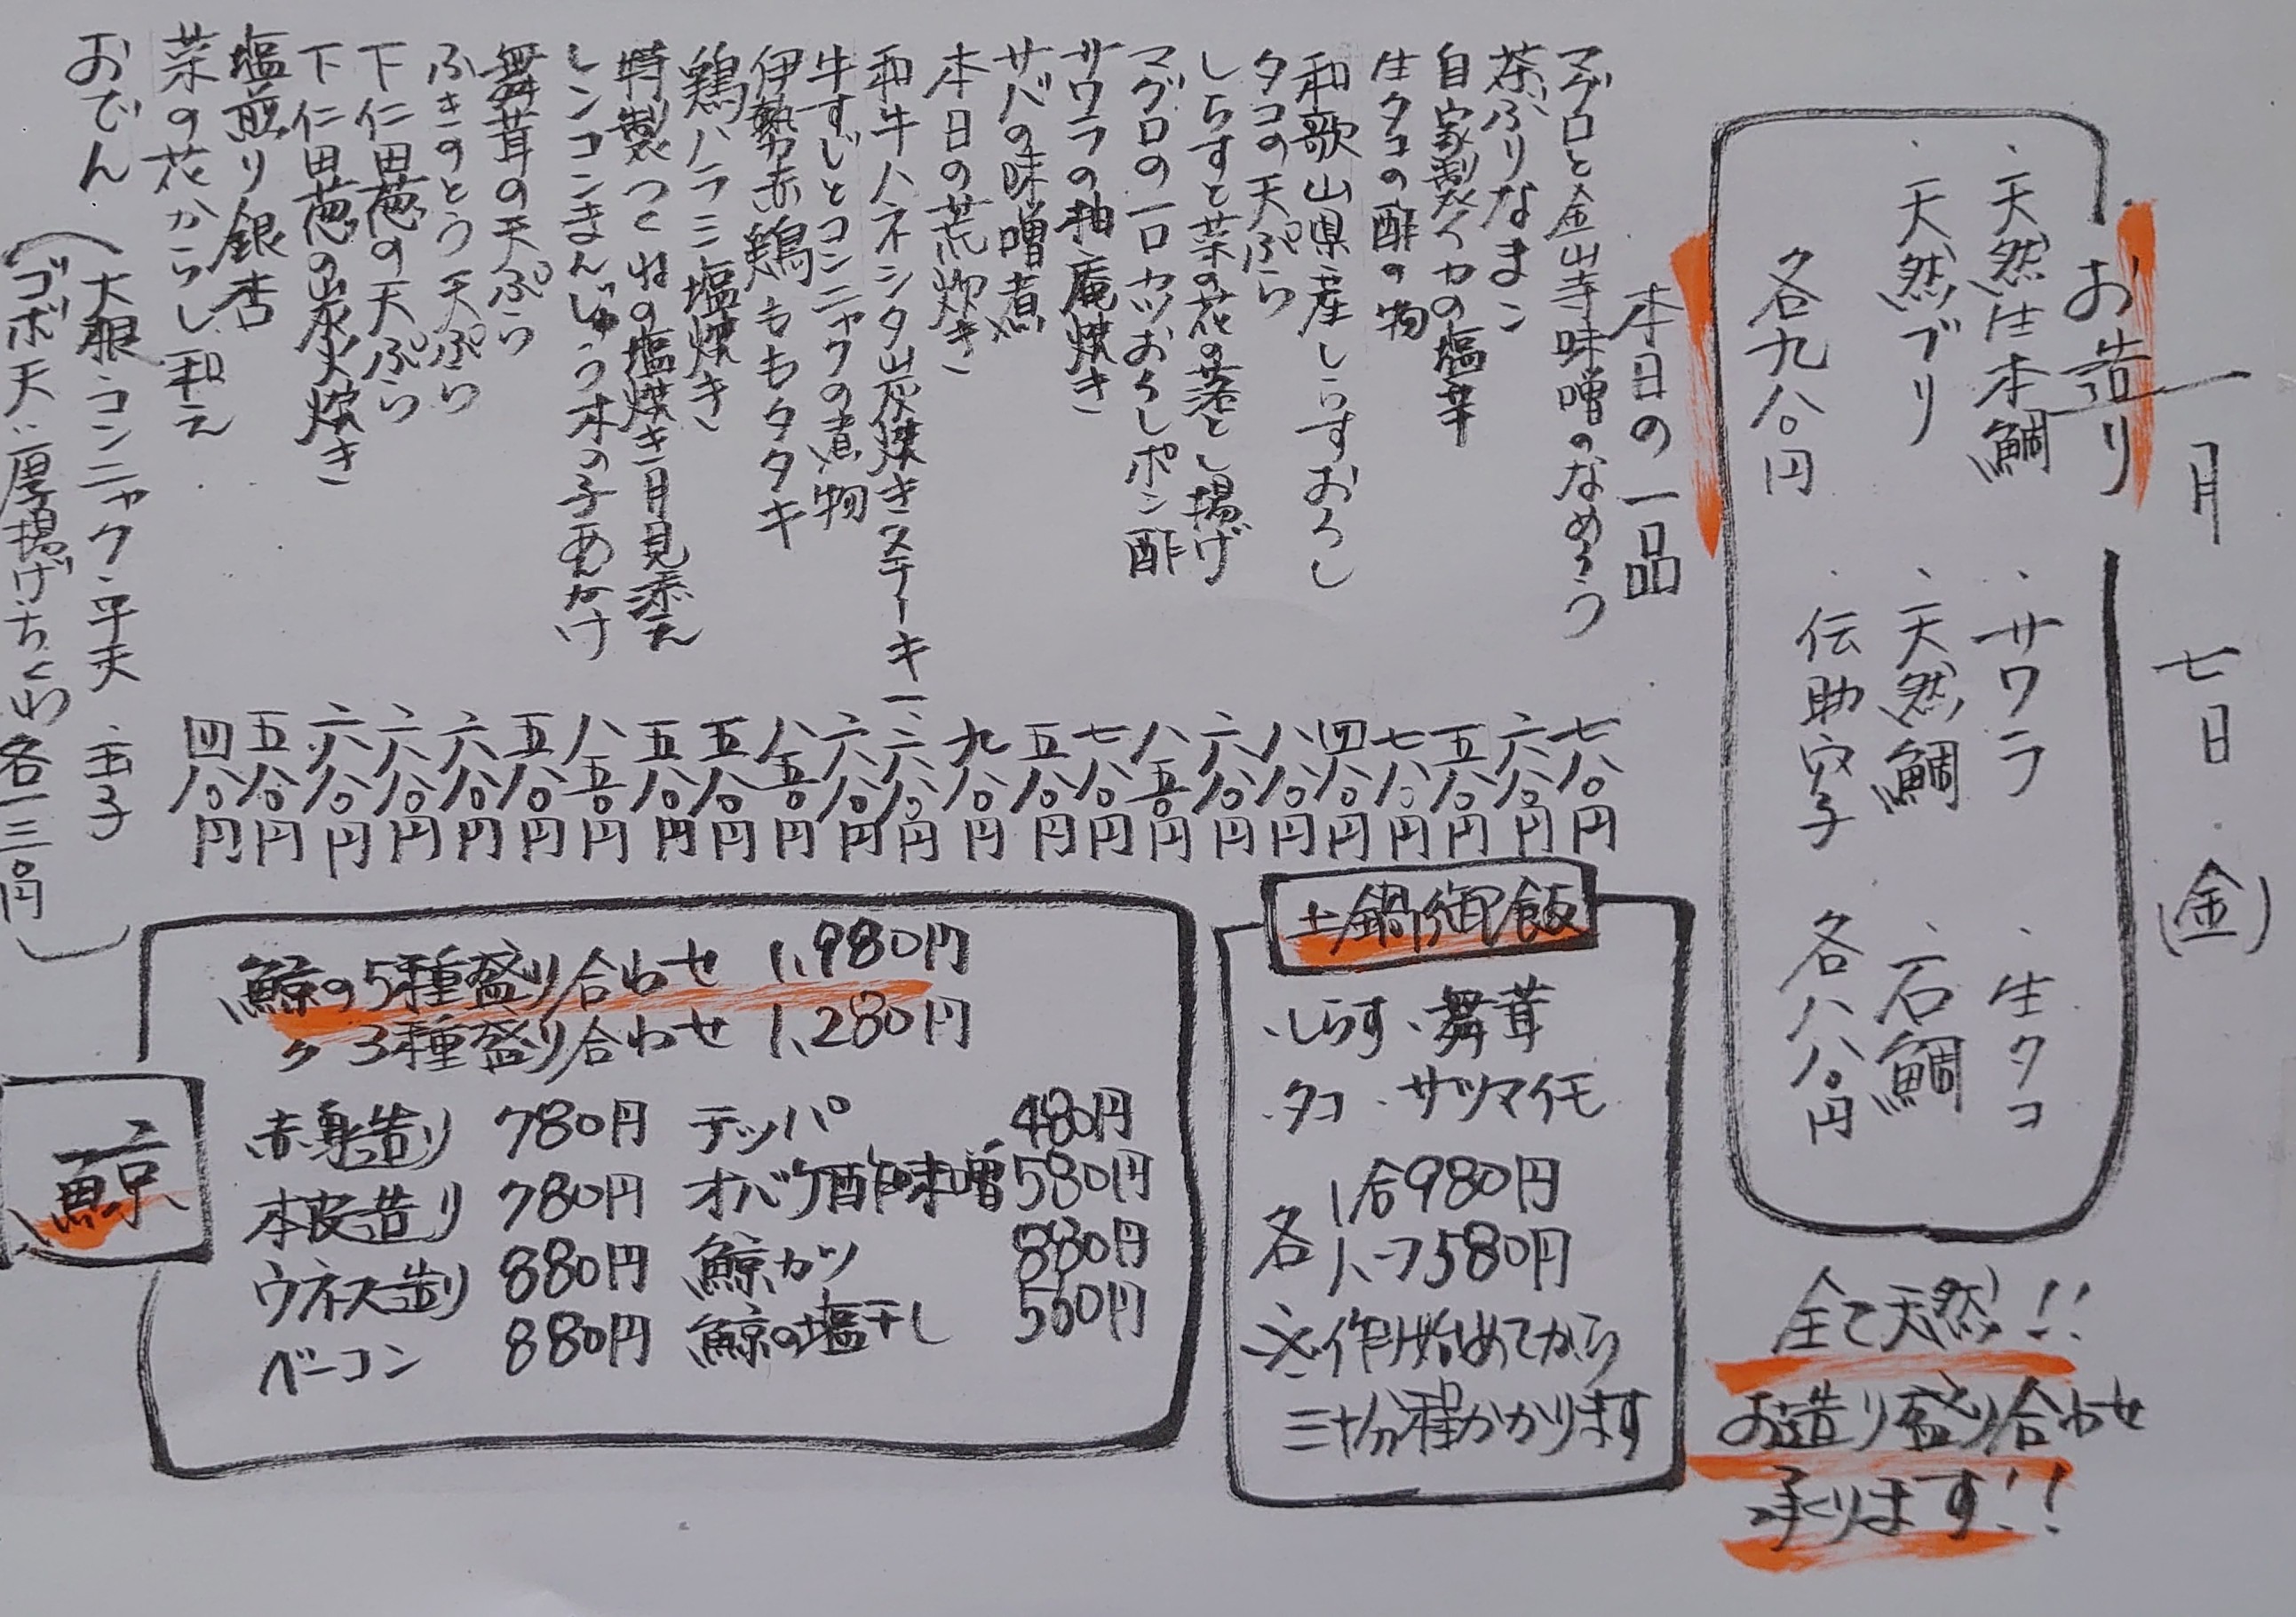 一月 七日 (金)
お造り
・天然生本鯛 ・サワラ ・生タコ
・天然ブリ ・天然鯛 ・石鯛
各九八〇円 ・伝助穴子 各八八〇円
全て天然!!
お造り盛り合わせ
承ります!!
本日の一品
マグロと金山寺味噌のなめろう 七八〇円
茶ぶりなまこ 六八〇円
自家製イカの塩辛 五八〇円
生タコの酢の物 七八〇円
和歌山県産しらすおろし 四八〇円
タコの天ぷら 八八〇円
しらすと菜の花の落とし揚げ 六八〇円
マグロの一口カツおろしポン酢 八五〇円
サワラの柚庵焼き 七八〇円
サバの味噌煮 五八〇円
本日の荒炊き 九八〇円
和牛ハネシタ炭焼きステーキ 一、六八〇円
牛すじとコンニャクの煮物 六八〇円
伊勢赤鶏ももタタキ 八五〇円
鶏ハラミ塩焼き 五八〇円
特製つくねの塩焼き月見添え 五八〇円
レンコンまんじゅう木の子あんかけ 八五〇円
舞茸の天ぷら 五八〇円
ふきのとう天ぷら 六八〇円
下仁田葱の天ぷら 六八〇円
下仁田葱の炭火焼き 六八〇円
塩煎り銀杏 五八〇円
菜の花からし和え 四八〇円
おでん (大根・コンニャク・平天・玉子
ゴボ天・厚揚げ・ちくわ 各一三〇円)
土鍋御飯
・しらす ・舞茸
・タコ ・サツマイモ
各 1合980円
ハーフ580円
※作り始めてから
三十分程かかります
鯨
鯨の5種盛り合わせ 1,980円
〃 3種盛り合わせ 1,280円
赤身造り 780円 テッパ 480円
本皮造り 780円 オバケ酢味噌 580円
ウネス造り 880円 鯨カツ 880円
ベーコン 880円 鯨の塩干し 550円